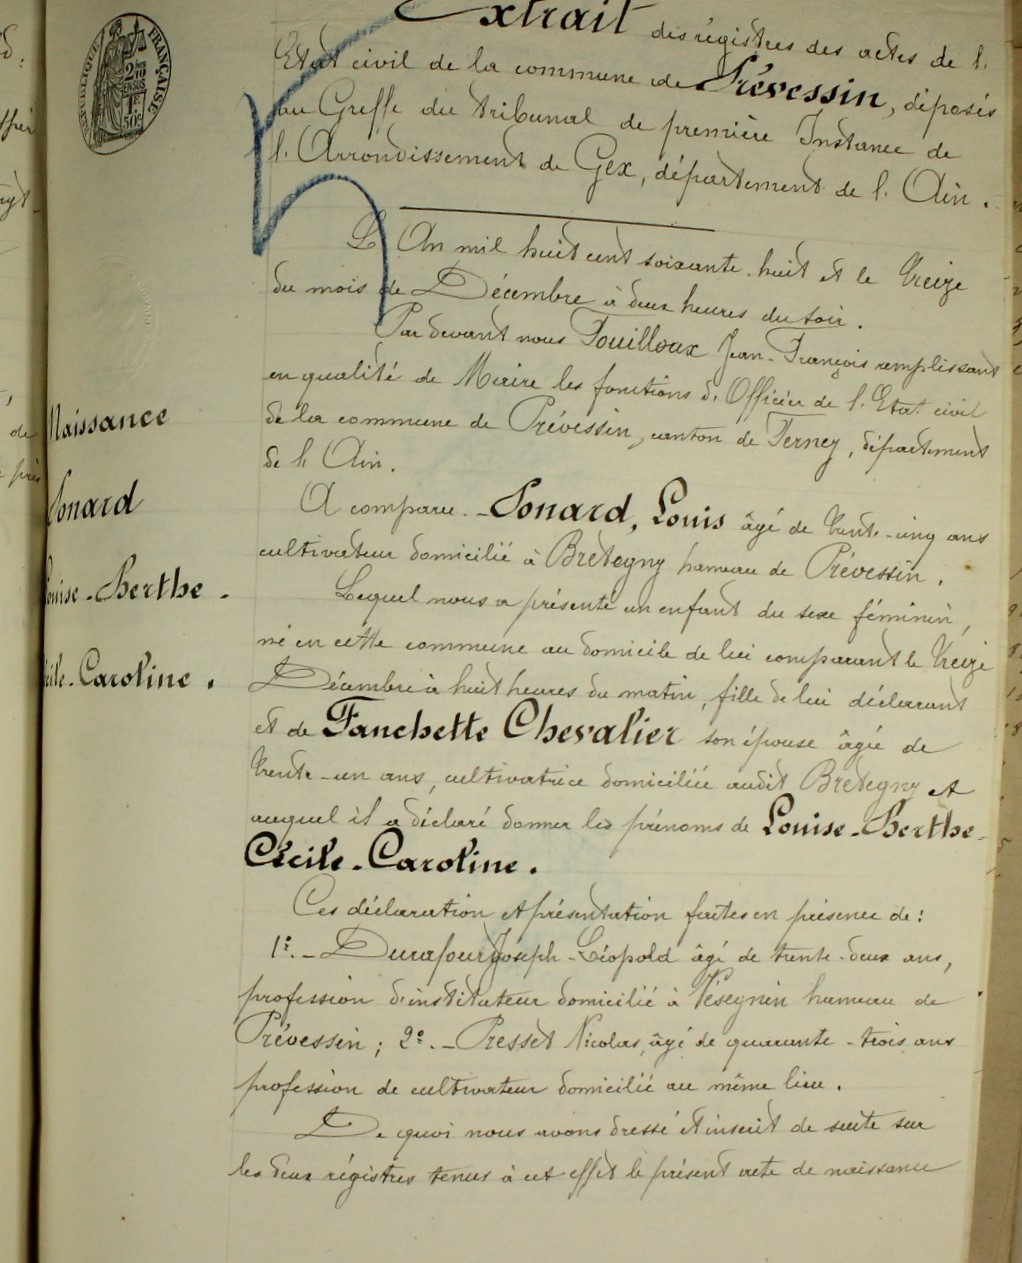 Extrait des régistres des actes de l'
Etat civil de la commune de Prévessin, déposés
au Greffe du tribunal de première Instance de
l'Arrondissement de Gex, département de l'Ain.
L'An mil huit cent soixante-huit et le treize
du mois de Décembre à deux heures du soir.
Par devant nous Pouilloux Jean-François remplissant
en qualité de Maire les fonctions d'Officier de l'Etat civil
de la commune de Prévessin, canton de Ferney, département
de l'Ain.
A comparu - Ponard, Louis âgé de trente-cinq ans
cultivateur domicilié à Bretegny hameau de Prévessin.
Lequel nous a présenté un enfant du sexe féminin,
né en cette commune au domicile de lui comparant le treize
Décembre à huit heures du matin, fille de lui déclarant
et de Fanchette Chevalier son épouse âgée de
trente-un ans, cultivatrice domiciliée audit Bretegny et
auquel il a déclaré donner les prénoms de Louise-Berthe-
Cécile-Caroline.
Ces déclaration et présentation faites en présence de:
1º.- Durafour Joseph-Léopold âgé de trente-deux ans,
profession d'instituteur domicilié à Vésegnin hameau de
Prévessin; 2º.- Presset Nicolas, âgé de quarante-trois ans
profession de cultivateur domicilié au même lieu.
De quoi nous avons dressé et inscrit de suite sur
les deux régistres tenus à cet effet le présent acte de naissance
Naissance
Ponard
Louise-Berthe-
Cécile-Caroline.
RÉPUBLIQUE FRANÇAISE
2/10
EN SUS
1F
50c